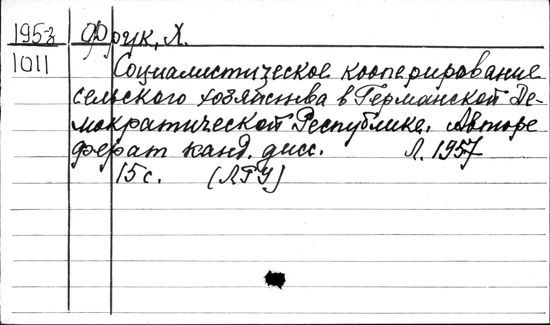 195-з Фрук, Л.
1011
Социалистическое кооперирование
сельского хозяйства в Германской Де-
мократической Республике. Авторе
ферат канд. дисс. Л. 1957
15 с. (ЛГУ)